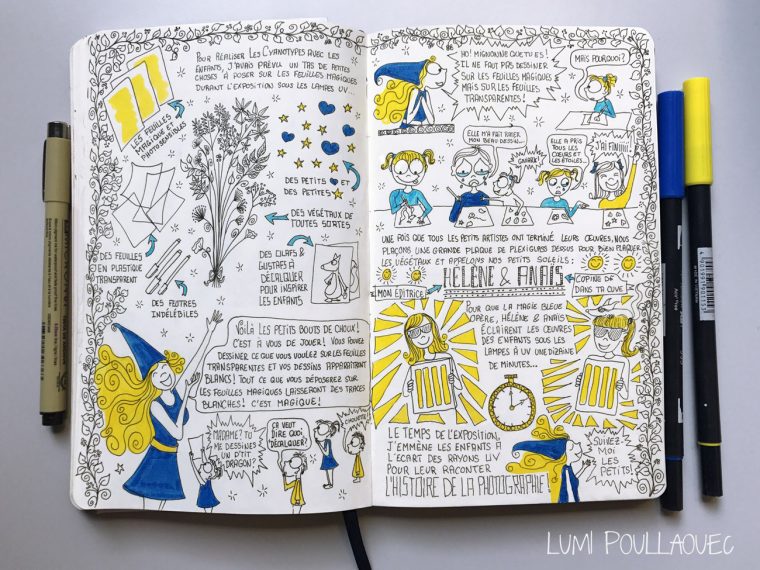 POUR RÉALISER LES CYANOTYPES AVEC LES
ENFANTS, J'AVAIS PRÉVU UN TAS DE PETITES
CHOSES À POSER SUR LES FEUILLES MAGIQUES
DURANT L'EXPOSITION SOUS LES LAMPES UV...
LES FEUILLES
MAGIQUES
PHOTOSENSIBLES
DES PETITS ET
DES PETITES
DES VÉGÉTAUX DE
TOUTES SORTES
DES FEUILLES
EN PLASTIQUE
TRANSPARENT
DES OLAFS &
GUSTAFS À
DÉCALQUER
POUR INSPIRER
LES ENFANTS
DES FEUTRES
INDÉLÉBILES
VOILÀ LES PETITS BOUTS DE CHOUX!
C'EST À VOUS DE JOUER! VOUS POUVEZ
DESSINER CE QUE VOUS VOULEZ SUR LES FEUILLES
TRANSPARENTES ET VOS DESSINS APPARAITRONT
BLANCS! TOUT CE QUE VOUS DÉPOSEREZ SUR
LES FEUILLES MAGIQUES LAISSERONT DES TRACES
BLANCHES! C'EST MAGIQUE!
MADAME? TU
ME DESSINES
UN P'TIT
DRAGON?
ÇA VEUT
DIRE QUOI
"DÉCALQUER"?
HO! MIGNONNE QUE TU ES!
IL NE FAUT PAS DESSINER
SUR LES FEUILLES MAGIQUES
MAIS SUR LES FEUILLES
TRANSPARENTES!
MAIS POURQUOI?
ELLE M'A FAIT RATER
MON BEAU DESSIN...
ELLE A PRIS
TOUS LES
COEURS ET
LES ÉTOILES...
J'AI FINIIII!
UNE FOIS QUE TOUS LES PETITS ARTISTES ONT TERMINÉ LEURS OEUVRES, NOUS
PLAÇONS UNE GRANDE PLAQUE DE PLEXIGLASS DESSUS POUR BIEN PLAQUER
LES VÉGÉTAUX ET APPELONS NOS PETITS SOLEILS:
HÉLÈNE & ANAÏS
MON ÉDITRICE
COPINE DE
DANS TA CUVE
POUR QUE LA MAGIE BLEUE
OPÈRE, HÉLÈNE & ANAÏS
ÉCLAIRENT LES OEUVRES
DES ENFANTS SOUS LES
LAMPES À UV UNE DIZAINE
DE MINUTES...
LE TEMPS DE L'EXPOSITION,
J'EMMÈNE LES ENFANTS À
L'ÉCART DES RAYONS UV
POUR LEUR RACONTER
L'HISTOIRE DE LA PHOTOGRAPHIE!
SUIVEZ-
MOI
LES
PETITS!
LUMI POULLAOUEC